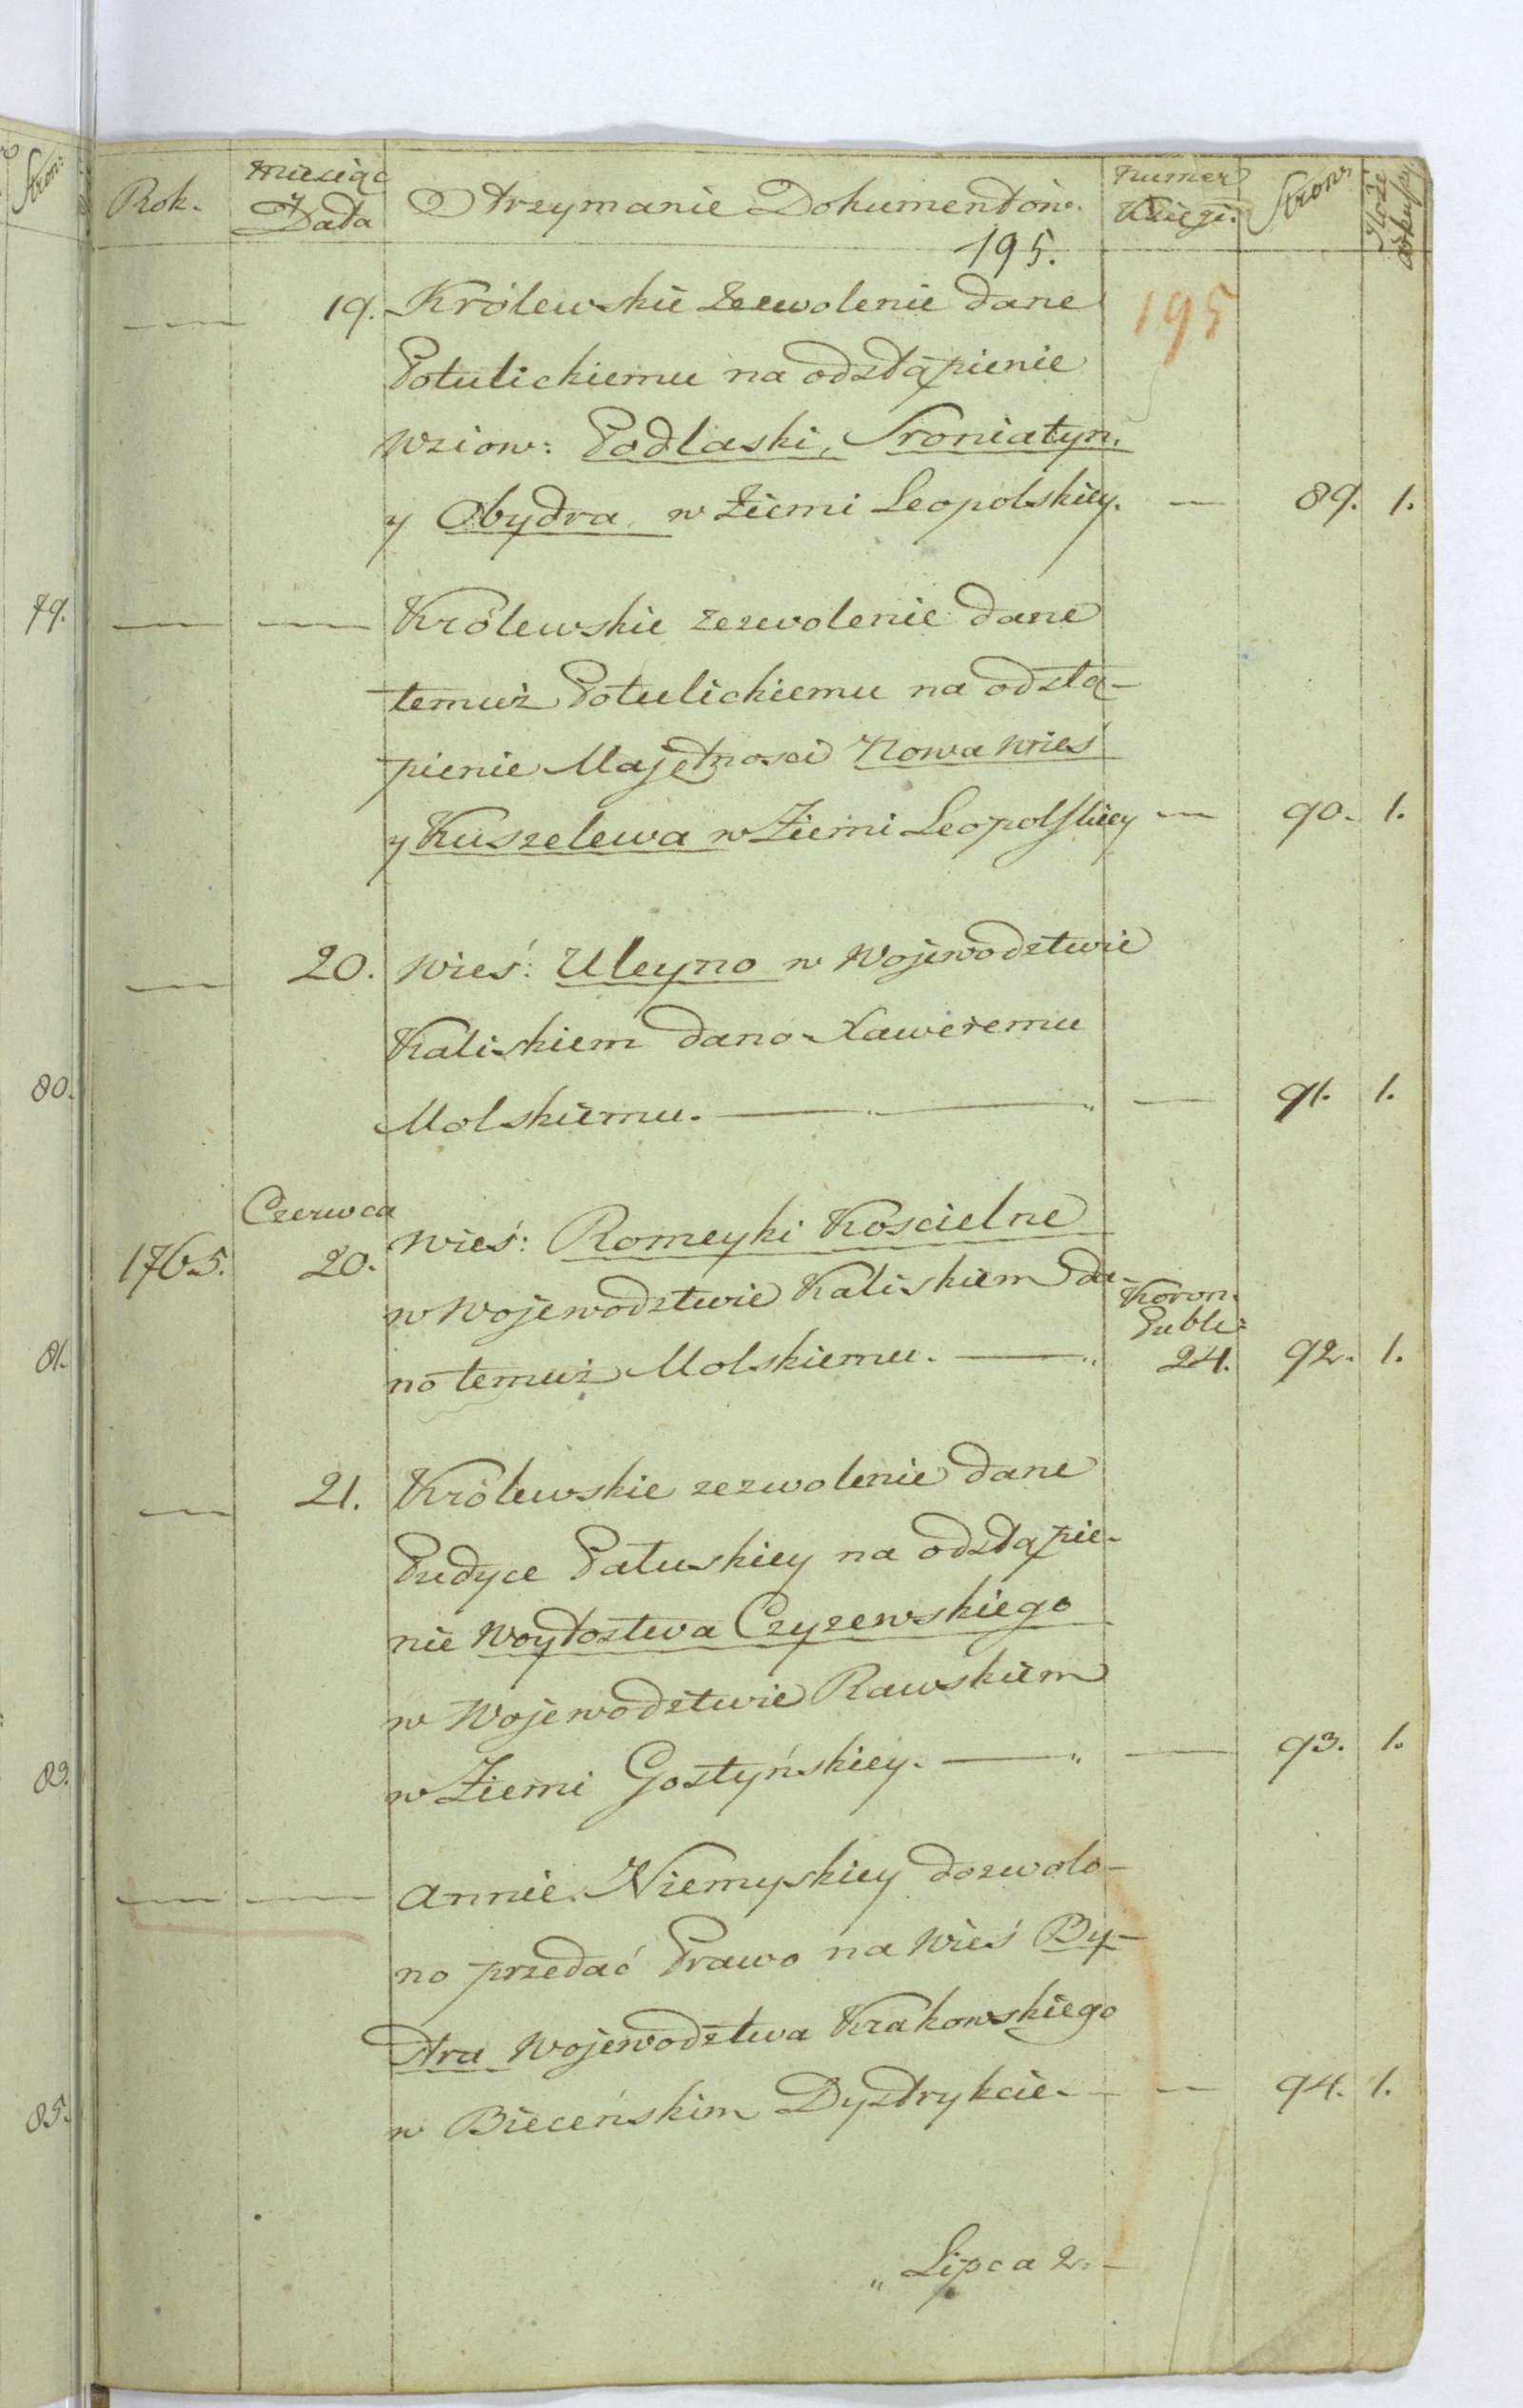 Stron:
Rok.
Miesiąc
y
Data
Otrzymanie Dokumentów.
Numer
Księgi.
Stron.
Ilość
arkuszy
195.
195
19. Królewskie zezwolenie dane
Potulickiemu na odstąpienie
Wsiow: Podlaski, Sroniatyn.
y Obydra w Ziemi Leopolskiey. — 89. 1.
79.
— — Królewskie zezwolenie dane
temuż Potulickiemu na odstą-
pienie Majętnosci Nowa Wieś
y Kuszelewa w Ziemi Leopolskiey — 90. 1.
— 20. Wieś: Uleyno w Wojewodztwie
Kaliskiem dano Xaweremu
80.
Molskiemu. — — 91. 1.
Czerwca
1765. 20. Wieś: Romeyki Kościelne
w Wojewodztwie Kaliskiem da-
Koron.
Publi:
81.
no temuż Molskiemu. — 24. 92. 1.
— 21. Królewskie zezwolenie dane
Pudyce Patuskiey na odstąpie-
nie Woytostwa Czyzewskiego
w Wojewodztwie Rawskiem
83.
w Ziemi Gostyńskiey. — — 93. 1.
— — Annie Niemyskiey dozwolo-
no przedać Prawo na Wieś By-
stra Wojewodztwa Krakowskiego
85.
w Bieceńskim Dystrykcie. — 94. 1.
„ Lipca 2. –